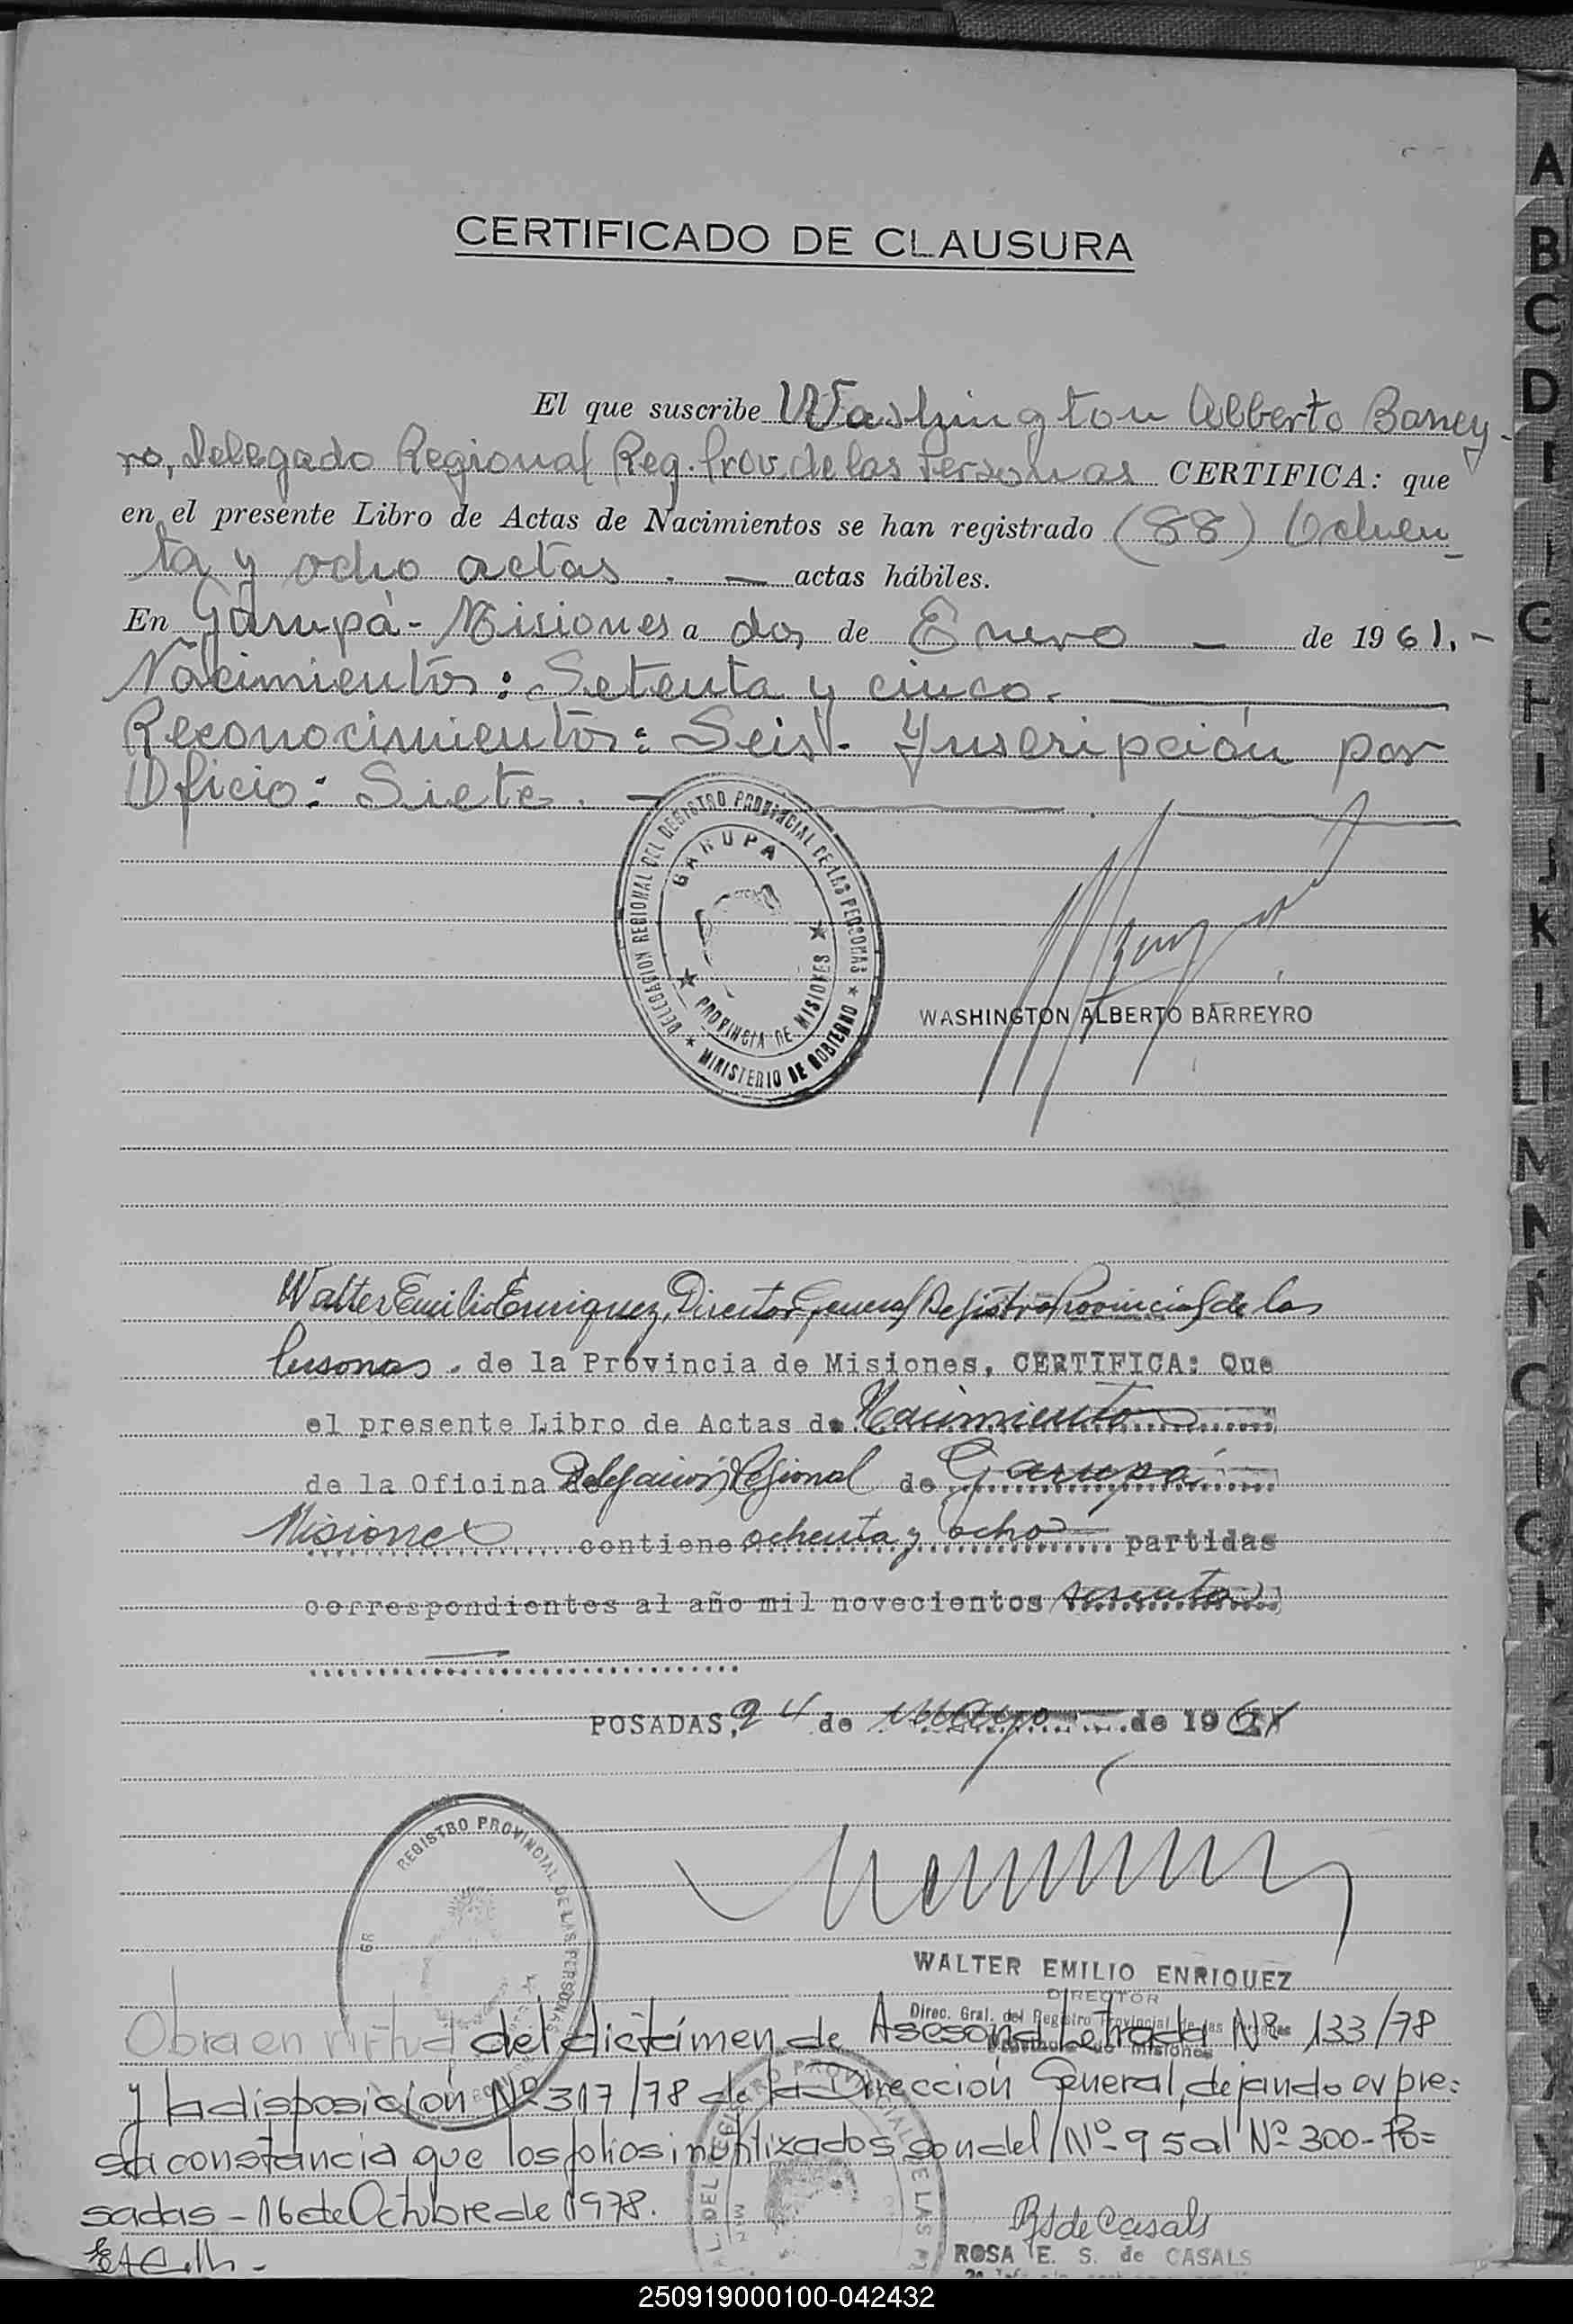 CERTIFICADO DE CLAUSURA
El que suscribe Washington Alberto Barrey-
ro, Delegado Regional Reg. Prov. de las Personas CERTIFICA: que
en el presente Libro de Actas de Nacimientos se han registrado (88) Ochen-
ta y ocho actas . — actas hábiles.
En Garupá - Misiones a dos de Enero — de 1961.-
Nacimientos: Setenta y cinco.
Reconocimientos: Seis.- Ynscripción por
Oficio: Siete. —
DELEGACION REGIONAL DEL REGISTRO PROVINCIAL DE LAS PERSONAS ★ MINISTERIO DE GOBIERNO ★
GARUPA
★ PROVINCIA DE MISIONES ★
WASHINGTON ALBERTO BARREYRO
Walter Emilio Enriquez, Director General Registro Provincial de las
Personas - de la Provincia de Misiones, CERTIFICA: Que
el presente Libro de Actas de Nacimientos
de la Oficina Delegación Regional de Garupá
Misiones contiene ochenta y ocho partidas
correspondientes al año mil novecientos sesenta
POSADAS, 24 de mayo de 1961
REGISTRO PROVINCIAL DE LAS PERSONAS
WALTER EMILIO ENRIQUEZ
DIRECTOR
Direc. Gral. del Registro Provincial de las Personas
Provincia de Misiones
Obra en virtud del dictámen de Asesoría Letrada Nº 133/78
y la disposición Nº 317/78 de la Dirección General, dejando expre=
sa constancia que los folios inutilizados son del Nº 95 al Nº 300 - Po=
sadas - 16 de Octubre de 1978.
RS de Casals
ROSA E. S. de CASALS
A
B
C
D
K
250919000100-042432